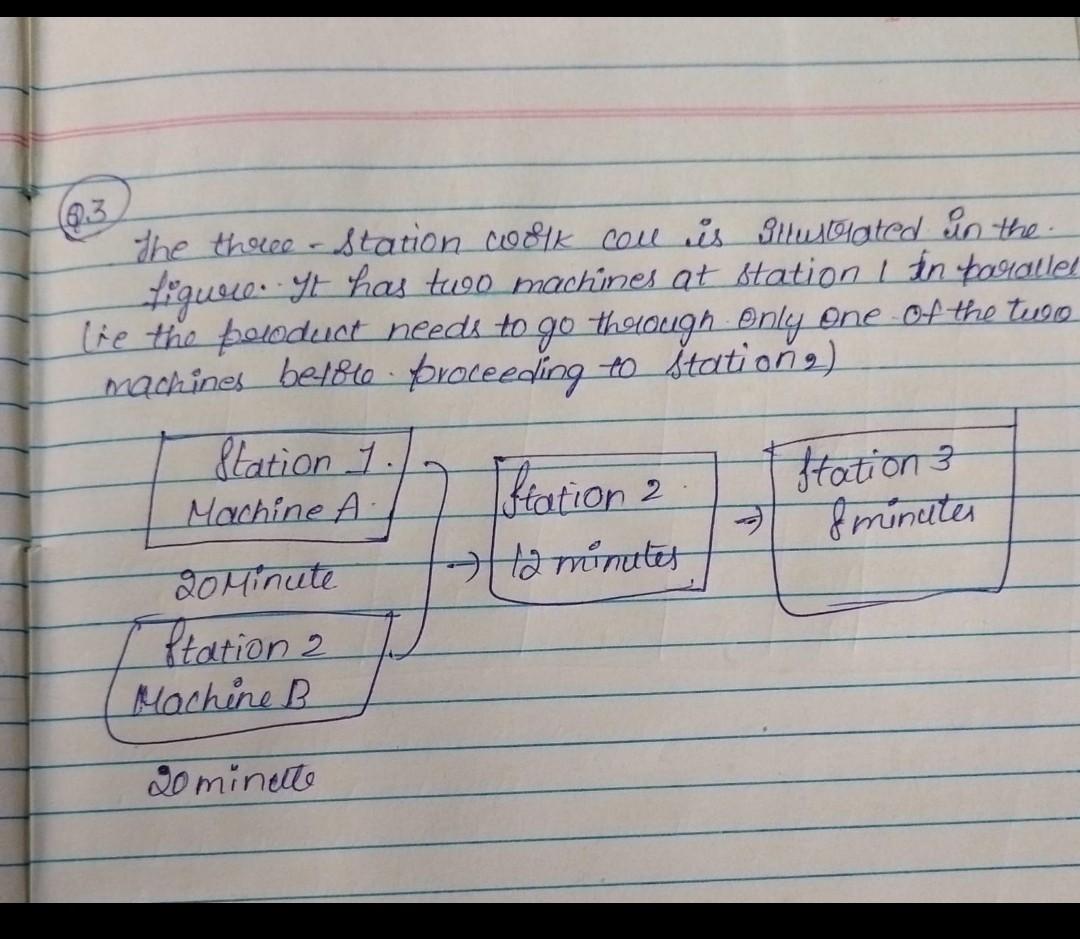 Q.3
The three-Station work cell is illustrated in the.
figure. It has two machines at station 1 in parallel
(ie the product needs to go through only one of the two
machines before proceeding to station 2)
Station 1.
Machine A.
20 Minute
Station 2
Machine B
20 minute
Station 2
12 minutes
Station 3
8 minutes